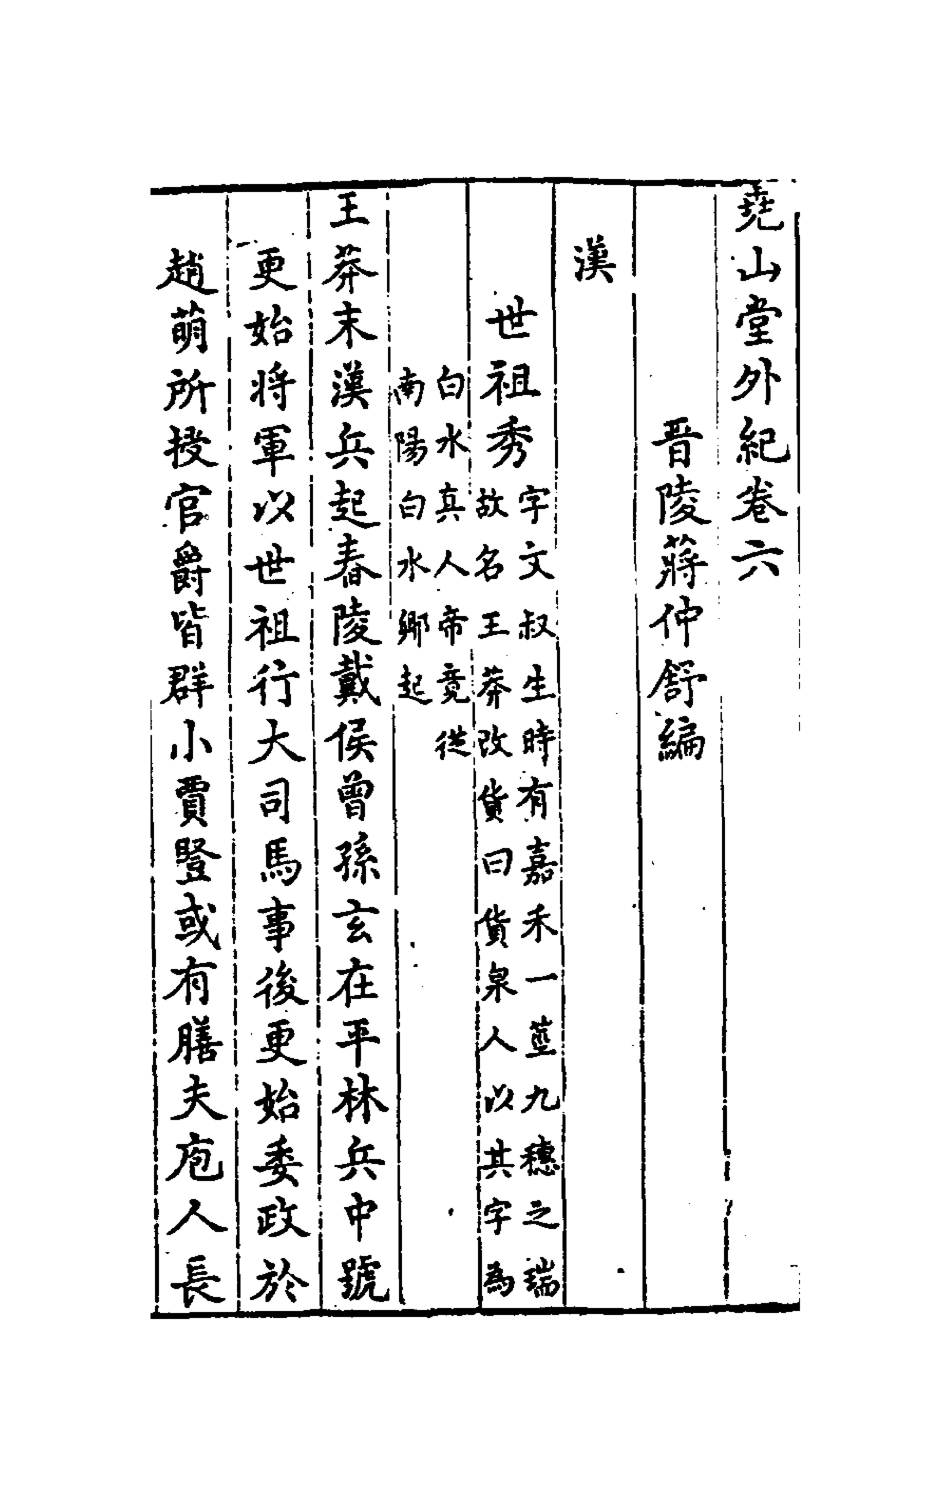 堯山堂外紀卷六
晉陵蔣仲舒編
漢
世祖秀
字文叔生時有嘉禾一莖九穗之瑞
故名王莽改貨曰貨泉人以其字為
白水真人帝竟從
南陽白水鄉起
王莽末漢兵起舂陵戴侯曾孫玄在平林兵中號
更始將軍以世祖行大司馬事後更始委政於
趙萌所授官爵皆群小賈豎或有膳夫庖人長